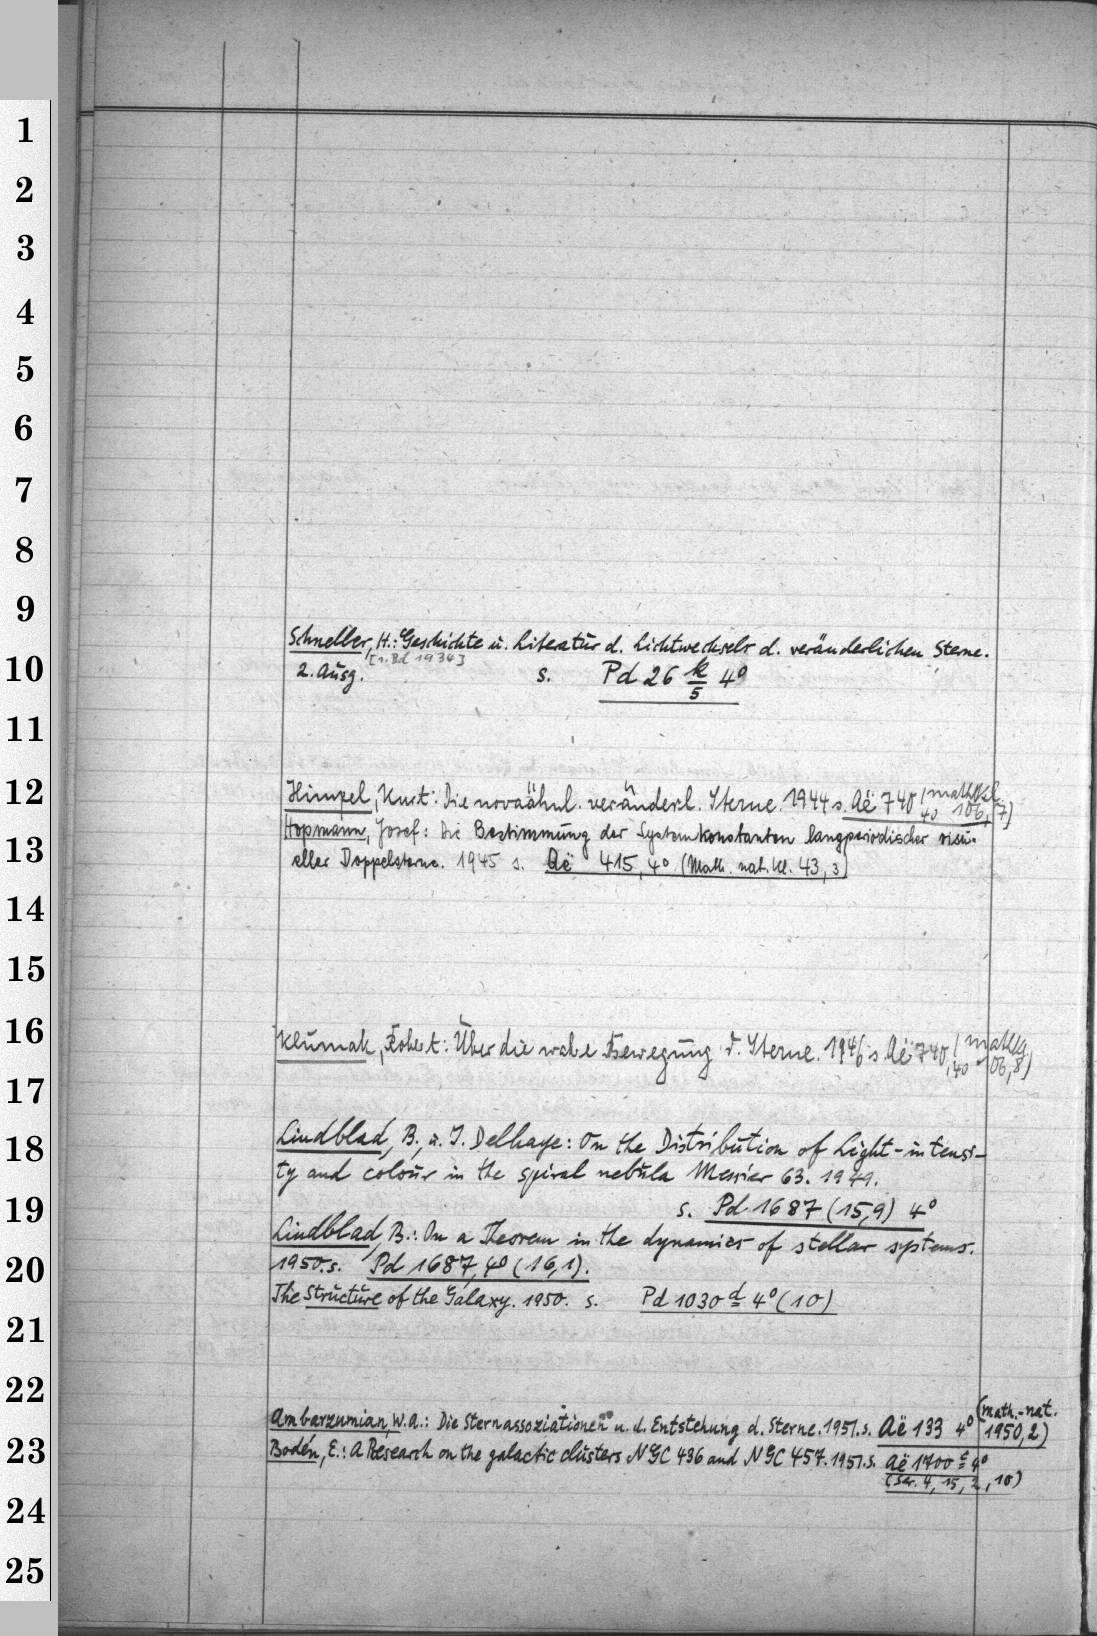 1
2
3
4
5
6
7
8
9
10
11
12
13
14
15
16
17
18
19
20
21
22
23
24
25
Schneller, H.: Geschichte u. Literatur d. Lichtwechsels d. veränderlichen Sterne.
[1. Bd 1934]
2. Ausg. s. Pd 26 k/5 4°
Himpel, Kurt: Die novaähnl. veränderl. Sterne. 1944 s. Aë 740 (math Kl.
4° 106, 7)
Hopmann, Josef: Die Bestimmung der Systemkonstanten langperiodischer visu-
eller Doppelsterne. 1945 s. Aë 415, 4° (Math. nat. Kl. 43, 3)
Klumak, Robert: Über die wahre Bewegung d. Sterne. 1946 s. Aë 740, (math Kl
4° 106, 8)
Lindblad, B., u. J. Delhaye: On the Distribution of Light-intensi-
ty and colour in the spiral nebula Messier 63. 1949.
s. Pd 1687 (15,9) 4°
Lindblad, B.: On a Theorem in the dynamics of stellar systems.
1950. s. Pd 1687, 4° (16,1).
The Structure of the Galaxy. 1950. s. Pd 1030 d 4° (10)
Ambarzumian, W.A.: Die Sternassoziationen u. d. Entstehung d. Sterne. 1951. s. Aë 133 4° (math.-nat.
1950, 2)
Bodén, E.: A Research on the galactic clusters NGC 436 and NGC 457. 1951. s. Aë 1700 4°
(Ser. 4, 15, 2, 10)